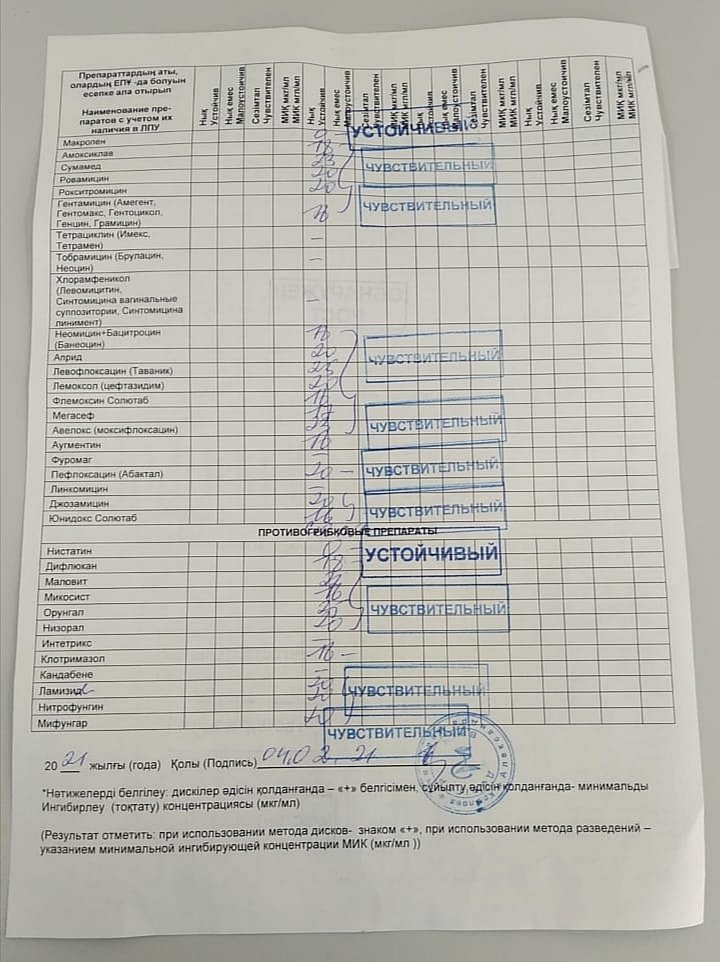 Препараттардың аты,
олардың ЕПҰ -да болуын
есепке ала отырып
Наименование пре-
паратов с учетом их
наличия в ЛПУ
Нық Устойчив
Нық емес Малоустойчив
Сезімтал Чувствителен
МИҚ мкг/мл МИК мгл/мл
Нық Устойчив
Нық емес Малоустойчив
Сезімтал Чувствителен
МИҚ мкг/мл МИК мгл/мл
Нық Устойчив
Нық емес Малоустойчив
Сезімтал Чувствителен
МИҚ мкг/мл МИК мгл/мл
Нық Устойчив
Нық емес Малоустойчив
Сезімтал Чувствителен
МИҚ мкг/мл МИК мгл/мл
Макропен 9 УСТОЙЧИВЫЙ
Амоксиклав 18
Сумамед 23 ЧУВСТВИТЕЛЬНЫЙ
Ровамицин 20
Рокситромицин 20
Гентамицин (Амегент,
Гентомакс, Гентоцикол,
Генцин, Грамицин) 18 ЧУВСТВИТЕЛЬНЫЙ
Тетрациклин (Имекс,
Тетрамен) –
Тобрамицин (Брулацин,
Неоцин) –
Хлорамфеникол
(Левомицитин,
Синтомицина вагинальные
суппозитории, Синтомицина
линимент) –
Неомицин+Бацитроцин
(Банеоцин) 18
Априд 20 ЧУВСТВИТЕЛЬНЫЙ
Левофлоксацин (Таваник) 25
Лемоксол (цефтазидим) 20
Флемоксин Солютаб 18
Мегасеф
Авелокс (моксифлоксацин) ЧУВСТВИТЕЛЬНЫЙ
Аугментин 18
Фуромаг –
Пефлоксацин (Абактал) 20 – ЧУВСТВИТЕЛЬНЫЙ
Линкомицин –
Джозамицин 20 ЧУВСТВИТЕЛЬНЫЙ
Юнидокс Солютаб 18
ПРОТИВОГРИБКОВЫЕ ПРЕПАРАТЫ
Нистатин УСТОЙЧИВЫЙ
Дифлюкан 18
Маловит
Микосист 18
Орунгал 20 ЧУВСТВИТЕЛЬНЫЙ
Низорал 20
Интетрикс –
Клотримазол 18 –
Кандабене –
Ламизил 20 ЧУВСТВИТЕЛЬНЫЙ
Нитрофунгин
Мифунгар ЧУВСТВИТЕЛЬНЫЙ
20 21 жылғы (года) Қолы (Подпись) 04.02.21
*Нәтижелерді белгілеу: дискілер әдісін қолданғанда – «+» белгісімен, сұйылту әдісін қолданғанда- минимальды
Ингибирлеу (тоқтату) концентрациясы (мкг/мл)
(Результат отметить: при использовании метода дисков- знаком «+», при использовании метода разведений –
указанием минимальной ингибирующей концентрации МИК (мкг/мл ))